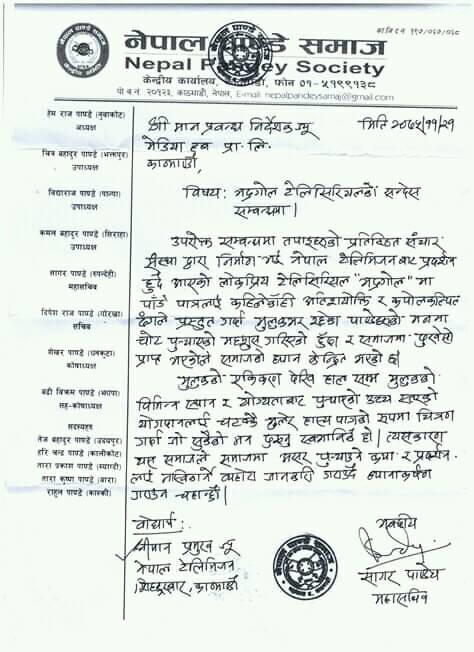 का जि द नं ११७/०६७/०६८
नेपाल पाण्डे समाज
Nepal Pandey Society
केन्द्रीय कार्यालय, काठमाडौं, फोन ०१-५१९९१३८
पो.ब.नं. २०१२३, काठमाडौं, नेपाल, E-mail: nepalpandeysamaj@gmail.com
हेम राज पाण्डे (नुवाकोट)
अध्यक्ष
चित्र बहादुर पाण्डे (भक्तपुर)
उपाध्यक्ष
विद्याराज पाण्डे (पाल्पा)
उपाध्यक्ष
कमल बहादुर पाण्डे (सिराहा)
उपाध्यक्ष
सागर पाण्डे (रुपन्देही)
महासचिव
दिपेश राज पाण्डे (गोरखा)
सचिव
शेखर पाण्डे (धनकुटा)
कोषाध्यक्ष
बद्री विक्रम पाण्डे (झापा)
सह-कोषाध्यक्ष
सदस्यहरु
तेज बहादुर पाण्डे (उदयपुर)
हरि चन्द्र पाण्डे (कालीकोट)
तारा प्रकाश पाण्डे (म्याग्दी)
तारा कृष्ण पाण्डे (बारा)
राहुल पाण्डे (कास्की)
मिति २०७५/११/२१
श्री मान प्रबन्ध निर्देशक ज्यू
मेडिया हब प्रा. लि.
काठमाडौं,
विषय: भद्रगोल टेलिसिरियलको सन्देस
सम्बन्धमा।
उपरोक्त सम्बन्धमा तपाइहरुको प्रतिष्ठित संचार
संस्था द्वारा निर्माण भई नेपाल टेलिभिजनबाट प्रदर्शन
हुँदै आएको लोकप्रिय टेलिसिरियल "भद्रगोल" मा
पाँडे पात्रलाई कहिलेकाँही अतिशयोक्ति र कपोलकल्पित
ढंगले प्रस्तुत गर्दा मुलुकभर रहेका पाण्डेहरुको मनमा
चोट पुऱ्याएको महसुस गरिएको हुँदा र समाजमा गुनासो
प्राप्त भएकोले समाजको ध्यान केन्द्रित भएको छ।
मुलुकको एकिकरण देखि हाल सम्म मुलुकको
विभिन्न स्थान र योग्यताबाट पुऱ्याएको उच्च स्तरको
योगदानलाई चटक्कै भुलेर हास्य पात्रको रुपमा चित्रण
गर्दा यो मन दुख्नु स्वभाविकै हो। त्यसकारण
यस समाजले समाजमा असर पुऱ्याउने कथा र प्रदर्शन
लाई व्यहोरा जानकारी गराउँदै ध्यानाकर्षण
गराउन चहान्छौं।
बोधार्थ:
श्रीमान प्रमुख ज्यू
नेपाल टेलिभिजन
सिंहदरबार, काठमाडौं
भवदीय
सागर पाण्डे
महासचिव